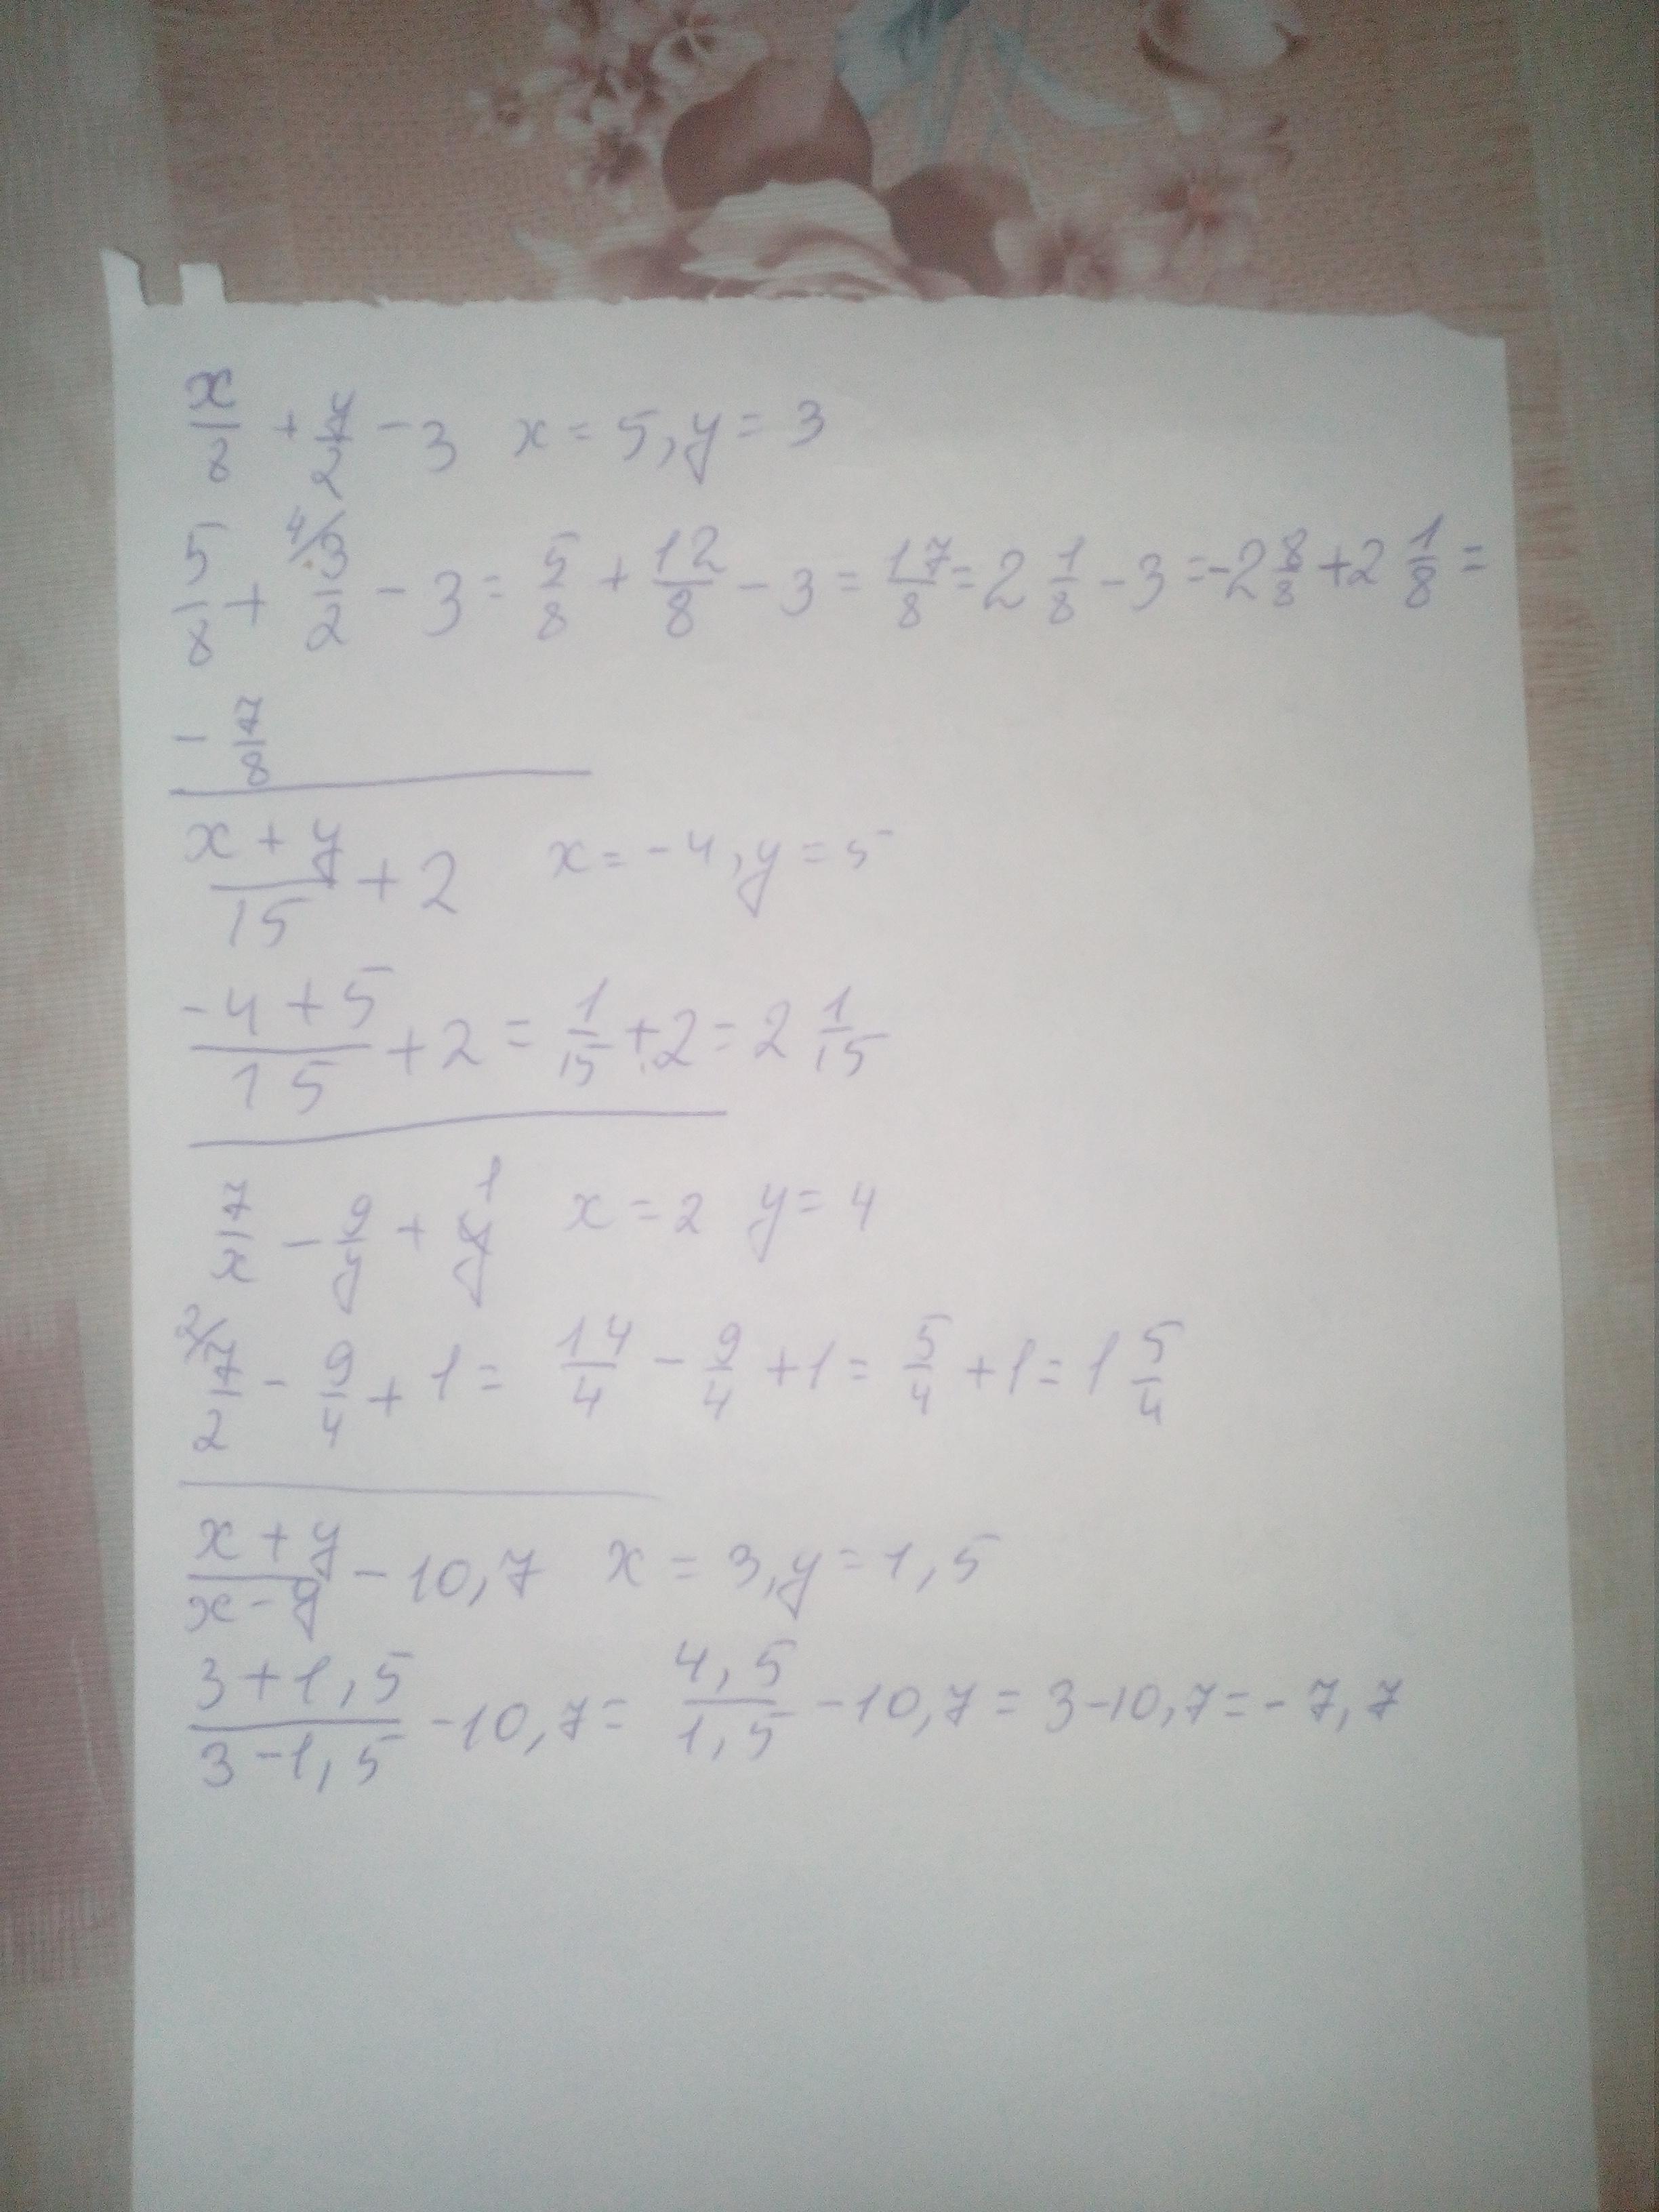 x/8 + y/2 - 3 x = 5, y = 3
5/8 + 4/ 3/2 - 3 = 5/8 + 12/8 - 3 = 17/8 = 2 1/8 - 3 = -2 8/8 + 2 1/8 =
- 7/8
(x + y)/15 + 2 x = -4, y = 5
(-4 + 5)/15 + 2 = 1/15 + 2 = 2 1/15
7/x - 9/y + 1 x = 2 y = 4
2/ 7/2 - 9/4 + 1 = 14/4 - 9/4 + 1 = 5/4 + 1 = 1 5/4
(x + y)/(x - y) - 10,7 x = 3, y = 1,5
(3 + 1,5)/(3 - 1,5) - 10,7 = 4,5/1,5 - 10,7 = 3 - 10,7 = - 7,7